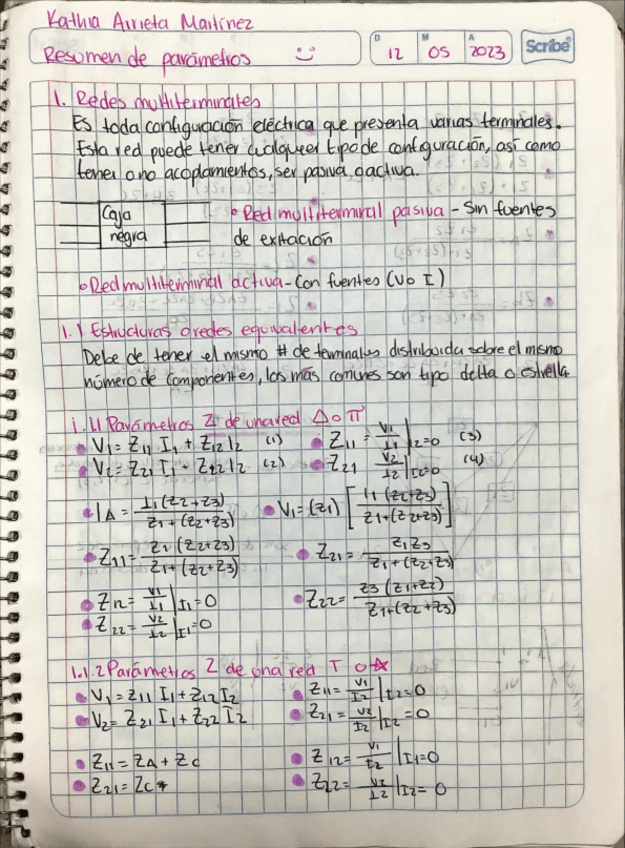 Kathia Arrieta Martínez
Resumen de parámetros
D M A
12 05 2023
Scribe
1. Redes multiterminales
Es toda configuración eléctrica que presenta varias terminales.
Esta red puede tener cualquier tipo de configuración, así como
tener o no acoplamientos, ser pasiva o activa.
Caja
negra
• Red multiterminal pasiva - Sin fuentes
de exitación
• Red multiterminal activa - Con fuentes (V o I)
1.1 Estructuras o redes equivalentes
Debe de tener el mismo # de terminales distribuida sobre el mismo
número de componentes, los más comunes son tipo delta o estrella
1.1.1 Parámetros Z de una red Δ o π
• V1 = Z11 I1 + Z12 I2 (1) • Z11 = V1/I1 | I2=0 (3)
• V2 = Z21 I1 + Z22 I2 (2) • Z21 V2/I2 | I2=0 (4)
• IA = I1(Z2+Z3)/Z1+(Z2+Z3) • V1 = (Z1) [I1(Z2+Z3)/Z1+(Z2+Z3)]
• Z11 = Z1(Z2+Z3)/Z1+(Z2+Z3) • Z21 = Z1Z3/Z1+(Z2+Z3)
• Z12 = V1/I1 | I1=0 • Z22 = Z3(Z1+Z2)/Z1+(Z2+Z3)
• Z22 = V2/I2 | I1=0
1.1.2 Parámetros Z de una red T o
• V1 = Z11 I1 + Z12 I2 • Z11 = V1/I2 | I2=0
• V2 = Z21 I1 + Z22 I2 • Z21 = V2/I2 | I2=0
• Z11 = ZA + ZC • Z12 = V1/I2 | I1=0
• Z21 = ZC • Z22 = V2/I2 | I2=0